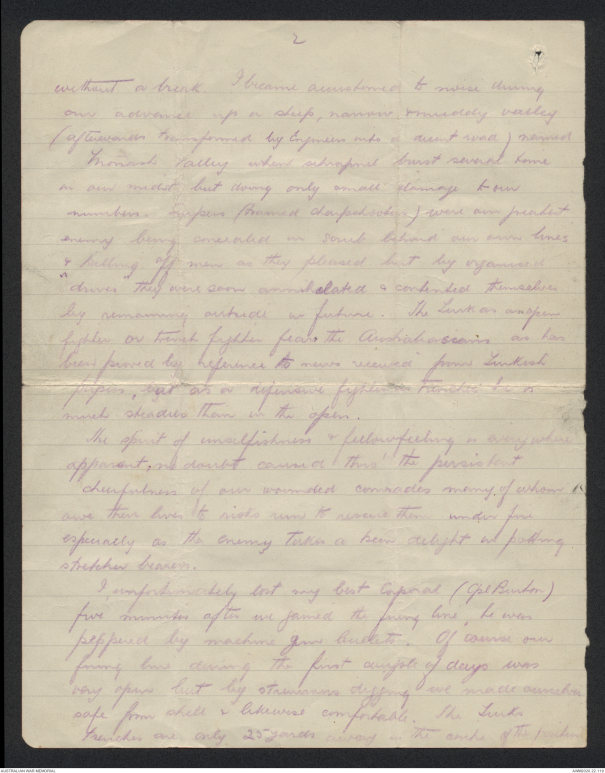 2
without a break. I became accustomed to noise during
our advance up a steep, narrow, & muddy valley
(afterwards transformed by Engineers into a decent road) named
Monash Valley where shrapnel burst several time
in our midst, but doing only small damage to our
numbers. Snipers (named sharpshooters) were our greatest
enemy being concealed in scrub behind our own lines
& killing off men as they pleased but by organised
"drives" they were soon annihilated & contented themselves
by remaining outside in future. The Turk as an open
fighter or trench fighter fears the Australasians as has
been proved by reference to news received from Turkish
papers, but as a defensive fighter in trenches he is
much steadier than in the open.
The spirit of unselfishness & fellowfeeling is everywhere
apparent, no doubt caused thro' the persistent
cheerfulness of our wounded comrades many of whom
owe their lives to risks run to rescue them under fire
especially as the enemy takes a keen delight in potting
stretcher bearers.
I, unfortunately lost my best Corporal (Cpl Burton)
five minutes after we joined the firing line, he was
peppered by machine gun bullets. Of course our
firing line during the first couple of days was
very open but by strenuous digging we made ourselves
safe from shell & likewise comfortable. The Turks
trenches are only 25 yards away in the centre of the
AUSTRALIAN WAR MEMORIAL